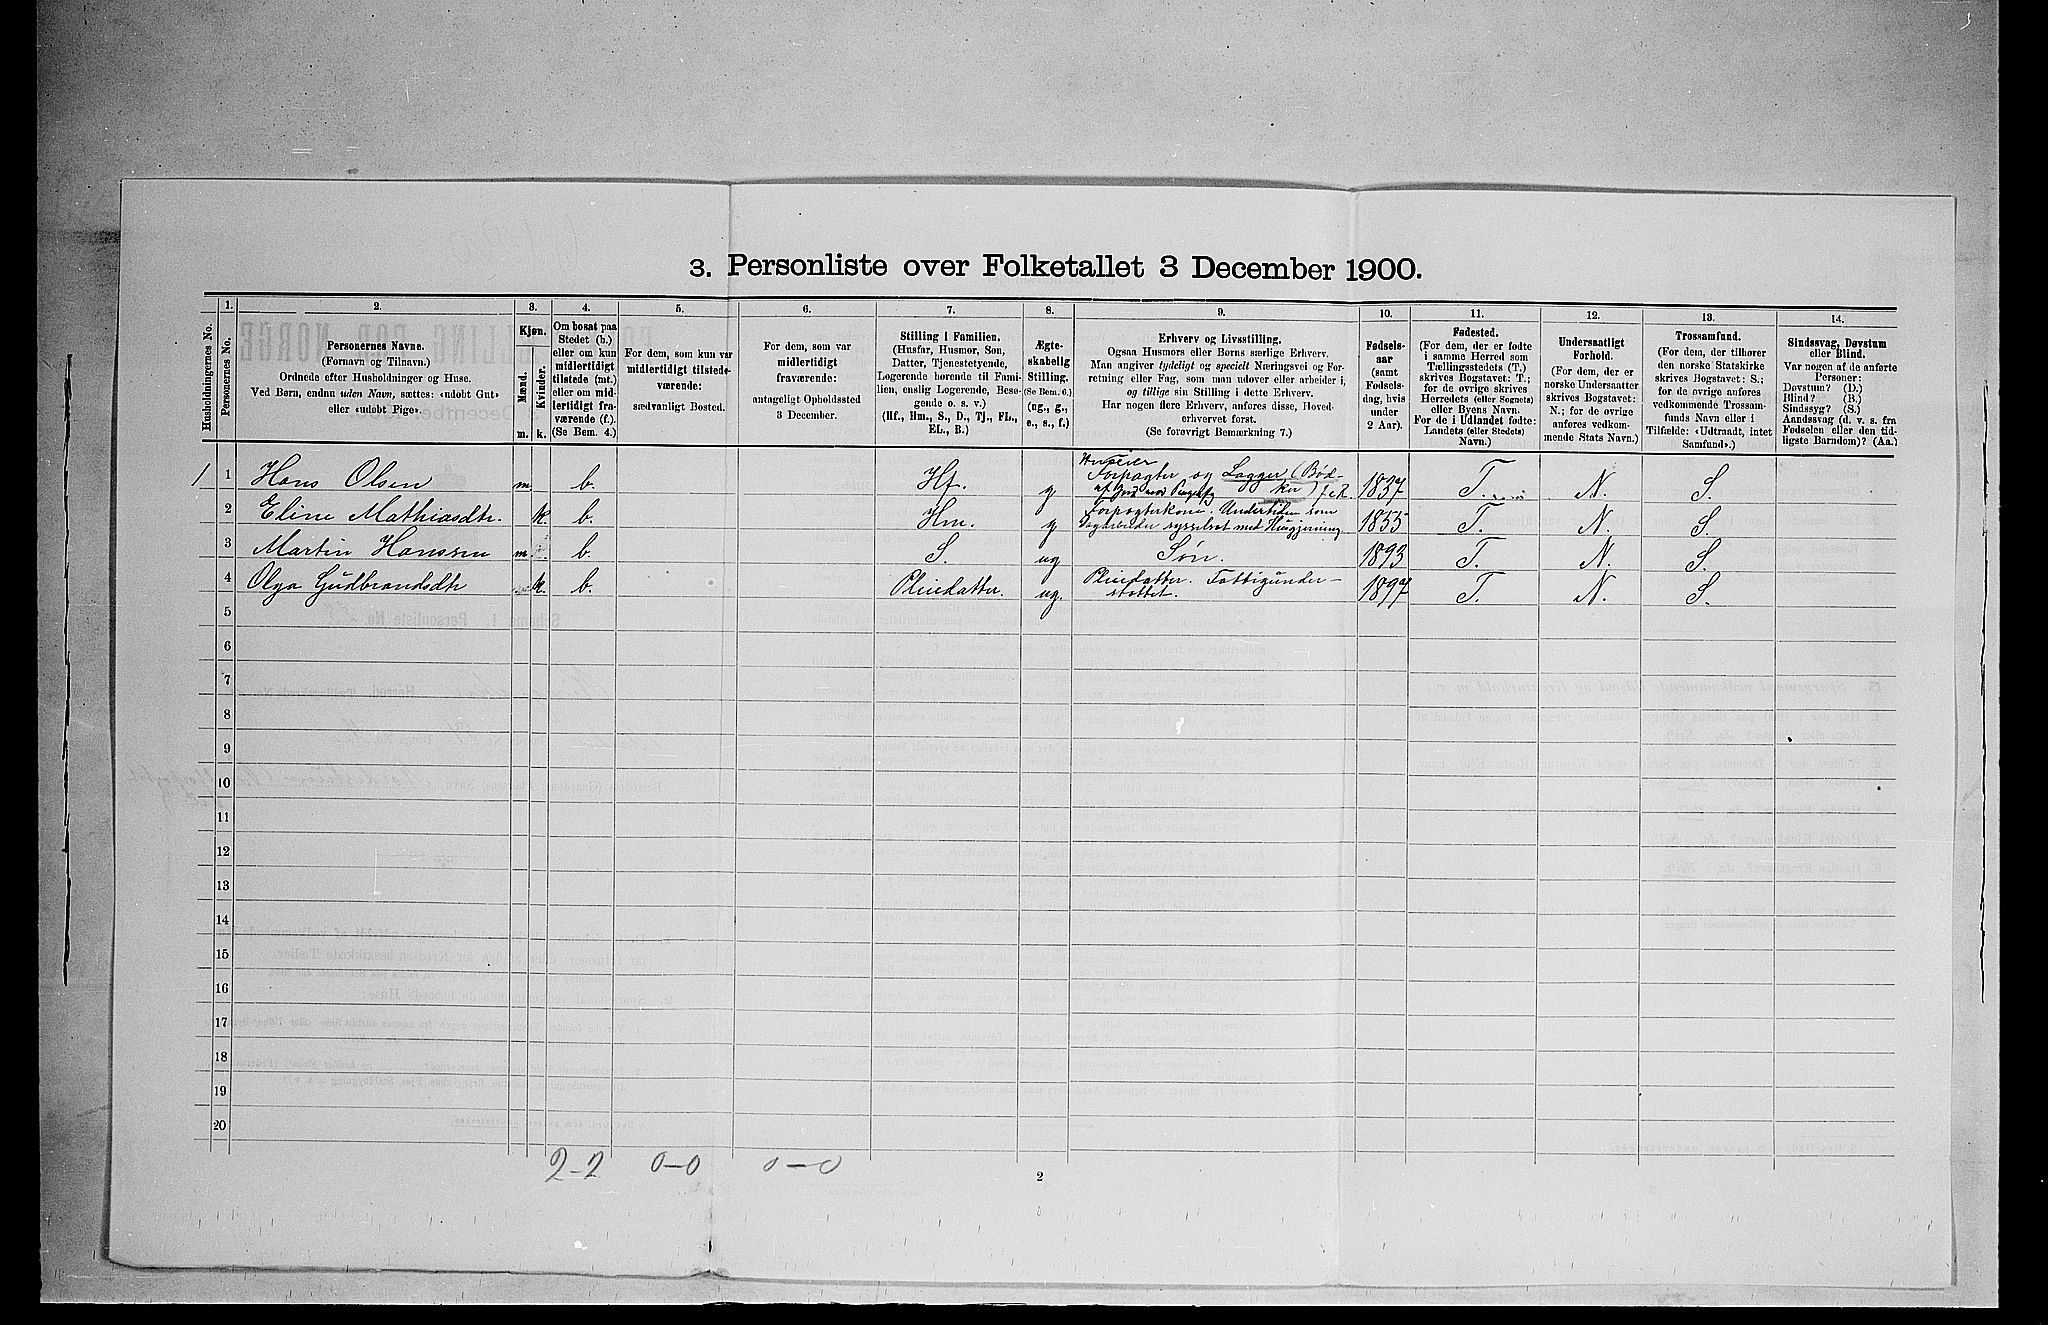 3. Personliste over Folketallet 3 December 1900.
Husholdningernes No.
1.
Personernes No.
2.
Personernes Navne.
(Fornavn og Tilnavn.)
Ordnede efter Husholdninger og Huse.
Ved Børn, endnu uden Navn, sættes: «udøbt Gut»
eller «udøbt Pige».
3.
Kjøn.
Mænd.
Kvinder.
m. k.
4.
Om bosat paa
Stedet (b.)
eller om kun
midlertidigt
tilstede (mt.)
eller om mid-
lertidigt fra-
værende (f.).
(Se Bem. 4.)
5.
For dem, som kun var
midlertidigt tilstede-
værende:
sædvanligt Bosted.
6.
For dem, som var
midlertidigt
fraværende:
antageligt Opholdssted
3 December.
7.
Stilling i Familien.
(Husfar, Husmor, Søn,
Datter, Tjenestetyende,
Logerende hørende til Fami-
lien, enslig Logerende, Besø-
gende o. s. v.)
(Hf., Hm., S., D., Tj., FL.,
EL., B.)
8.
Ægte-
skabelig
Stilling.
(Se Bem. 6.)
(ug., g.,
e., s., f.)
9.
Erhverv og Livsstilling.
Ogsaa Husmors eller Børns særlige Erhverv.
Man angiver tydeligt og specielt Næringsvei og For-
retning eller Fag, som man udøver eller arbeider i,
og tillige sin Stilling i dette Erhverv.
Har nogen flere Erhverv, anføres disse, Hoved-
erhvervet først.
(Se forøvrigt Bemærkning 7.)
10.
Fødsels-
aar
(samt
Fødsels-
dag, hvis
under
2 Aar).
11.
Fødested.
(For dem, der er fødte
i samme Herred som
Tællingsstedets (T.)
skrives Bogstavet: T.;
for de øvrige skrives
Herredets (eller Sognets)
eller Byens Navn.
For de i Udlandet fødte:
Landets (eller Stedets)
Navn.)
12.
Undersaatligt
Forhold.
(For dem, der er
norske Undersaatter
skrives Bogstavet:
N.; for de øvrige
anføres vedkom-
mende Stats Navn.)
13.
Trossamfund.
(For dem, der tilhører
den norske Statskirke
skrives Bogstavet: S.;
for de øvrige anføres
vedkommende Trossam-
funds Navn eller i
Tilfælde: «Udtraadt, intet
Samfund».)
14.
Sindssvag, Døvstum
eller Blind.
Var nogen af de anførte
Personer:
Døvstum? (D.)
Blind? (B.)
Sindssyg? (S.)
Aandssvag (d. v. s. fra
Fødselen eller den tid-
ligste Barndom)? (Aa.)
1 1 Hans Olsen m. b. Hf. g Huseier Forpagter og Lagger (Bød-
ker) 1837 T. N. S.
2 Eline Mathiasdtr. k. b. Hm. g Forpagterkone. Undertiden som
Dagarbeider sysselsat med Husgjerning 1855 T. N. S.
3 Martin Hanssen m. b. S. ug Søn. 1893 T. N. S.
4 Olga Gudbrandsdtr k. b. Pleiedatter. ug. Pleiedatter. Fattigunder-
støttet. 1897 T. N. S.
5
6
7
8
9
10
11
12
13
14
15
16
17
18
19
20
2-2 0-0 0-0
2